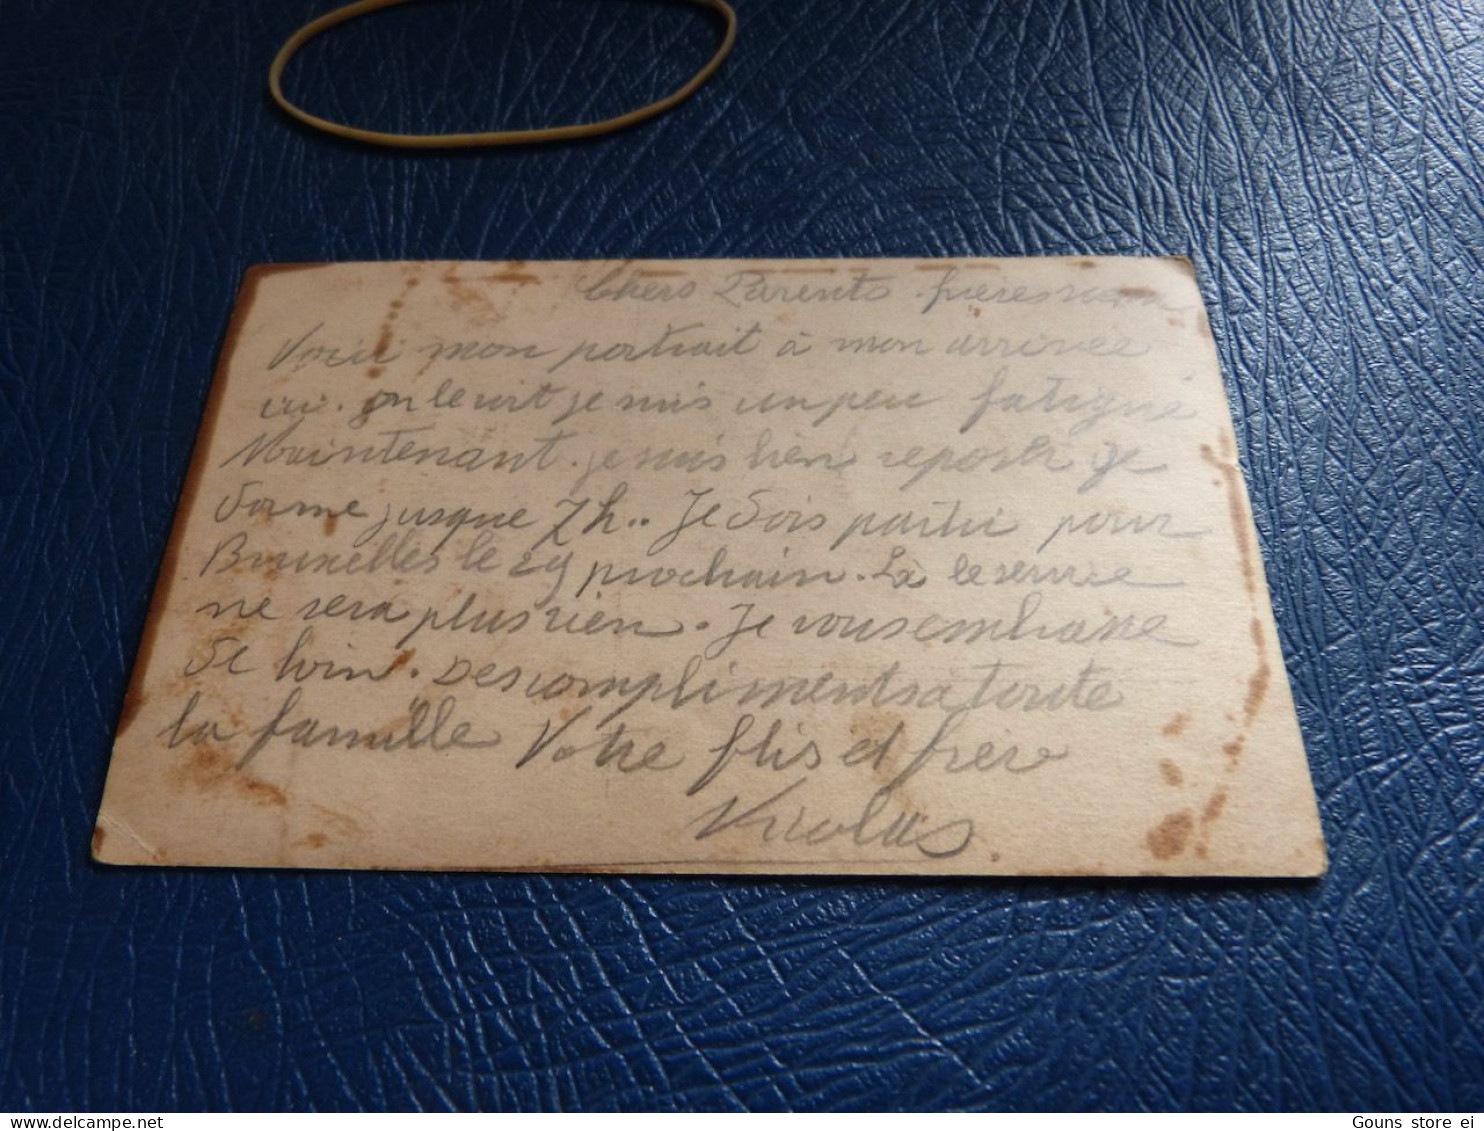 Chers Parents. frères
Voici mon portrait à mon arrivée
ici. on le voit je suis un peu fatigué
Maintenant. je suis bien reposer je
dorme jusque 7h.. Je dois partir pour
Bruxelles le 29 prochain. Là le service
ne sera plus rien. Je vous embrasse
de loin. Des compliments a toute
la famille Votre flis et frère
Nicolas
Gouns store ei